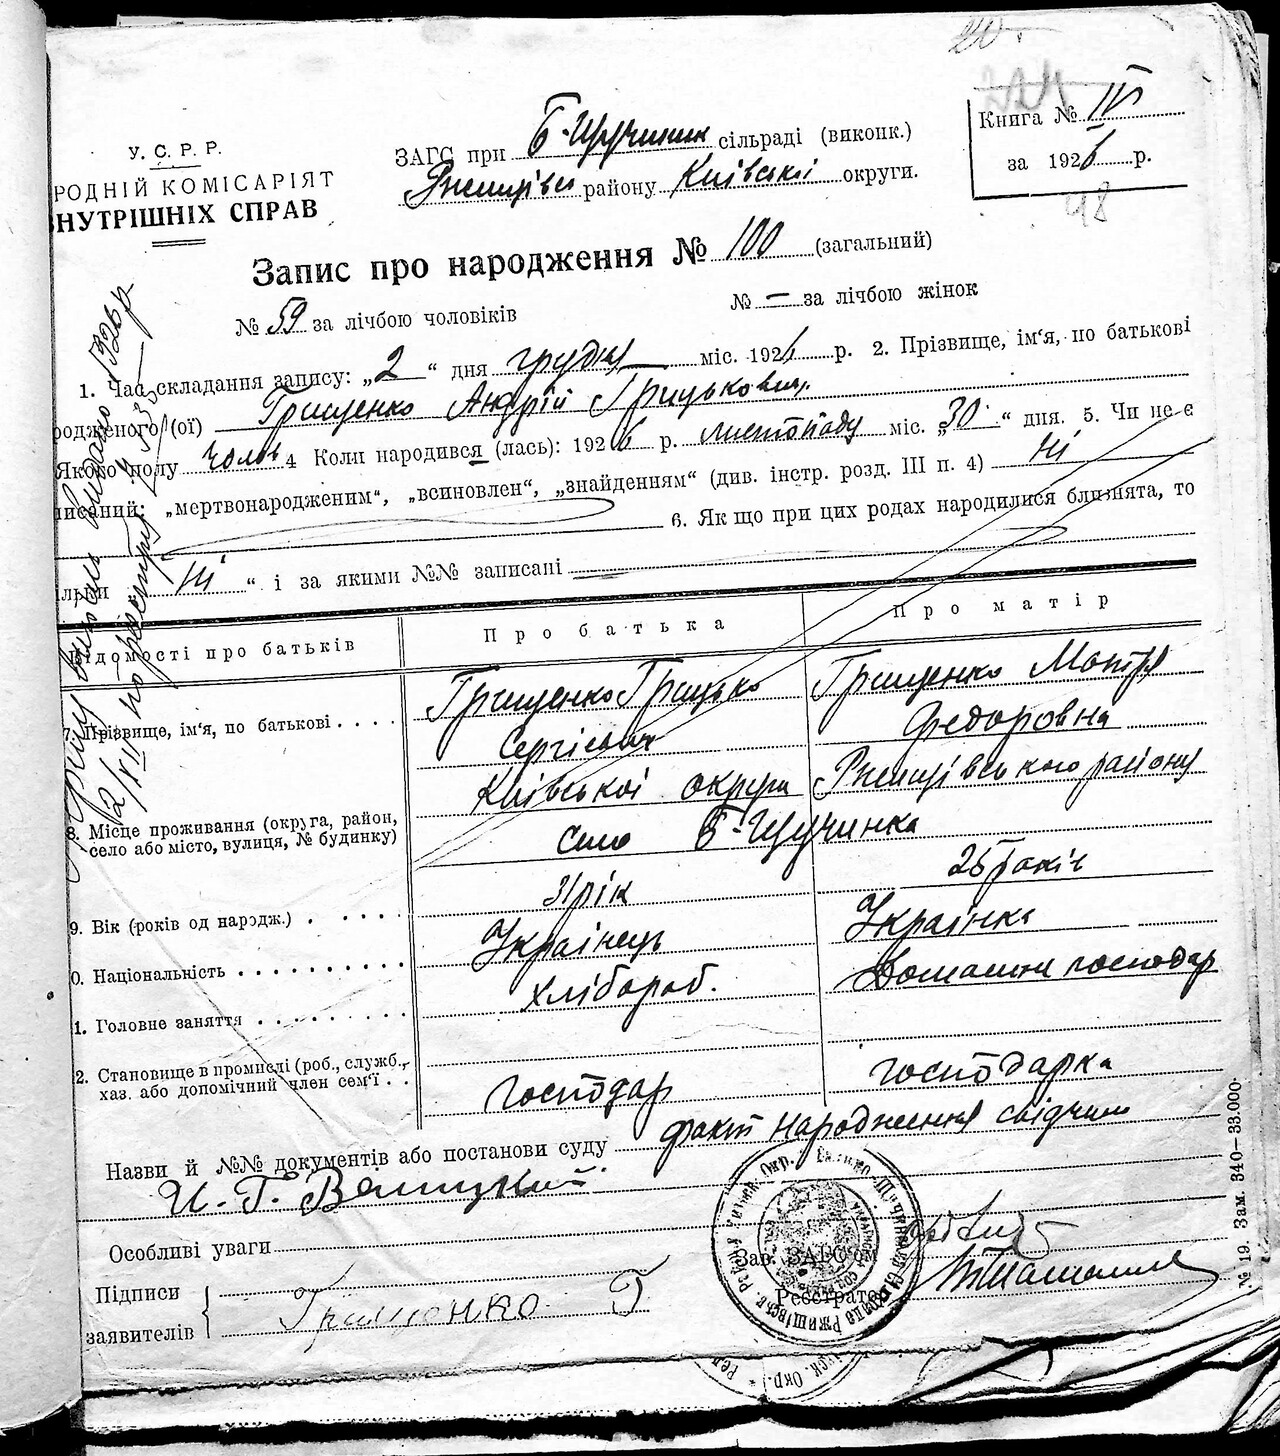 20
224
У. С. Р. Р.
РОДНІЙ КОМІСАРІЯТ
ВНУТРІШНІХ СПРАВ
ЗАГС при Б-Щучинск сільраді (виконк.)
Ржищівськ району Київської округи.
Книга № IV
за 1926 р.
48
Запис про народження № 100 (загальний)
№ 59 за лічбою чоловіків
№ — за лічбою жінок
1. Час складання запису: „2“ дня грудня міс. 1926 р. 2. Прізвище, ім‘я, по батькові
родженого (ої) Грищенко Андрій Грицькович
Якого полу чолов 4 Коли народився (лась): 1926 р. листопаду міс. „30“ дня. 5. Чи не є
писаний: „мертвонародженим“, „всиновлен“, „знайденням“ (див. інстр. розд. III п. 4) Ні
6. Як що при цих родах народилися близнята, то
ільки Ні “ і за якими №№ записані
Відомості про батьків
Про батька
Про матір
7. Прізвище, ім‘я, по батькові
Грищенко Грицько
Сергієвич
Грищенко Мотря
Федоровна
8. Місце проживання (округа, район,
село або місто, вулиця, № будинку)
Київської округи Ржищівського району
Село Б-Щучинка
9. Вік (років од народж.)
31 рік
25 років
0. Національність
Українець
Українка
1. Головне заняття
Хлібороб.
Домашнє господар
2. Становище в промислі (роб., служб.,
хаз. або допомічний член сем‘ї
Господар
господарка
Назви й №№ документів або постанови суду факт народження свідчит
И. Г. Велицкий
Особливі уваги
Підписи
заявителів
Грищенко Г
Зав. ЗАГС‘ом
Реєстратор
№ 19. Зам. 340—33.000